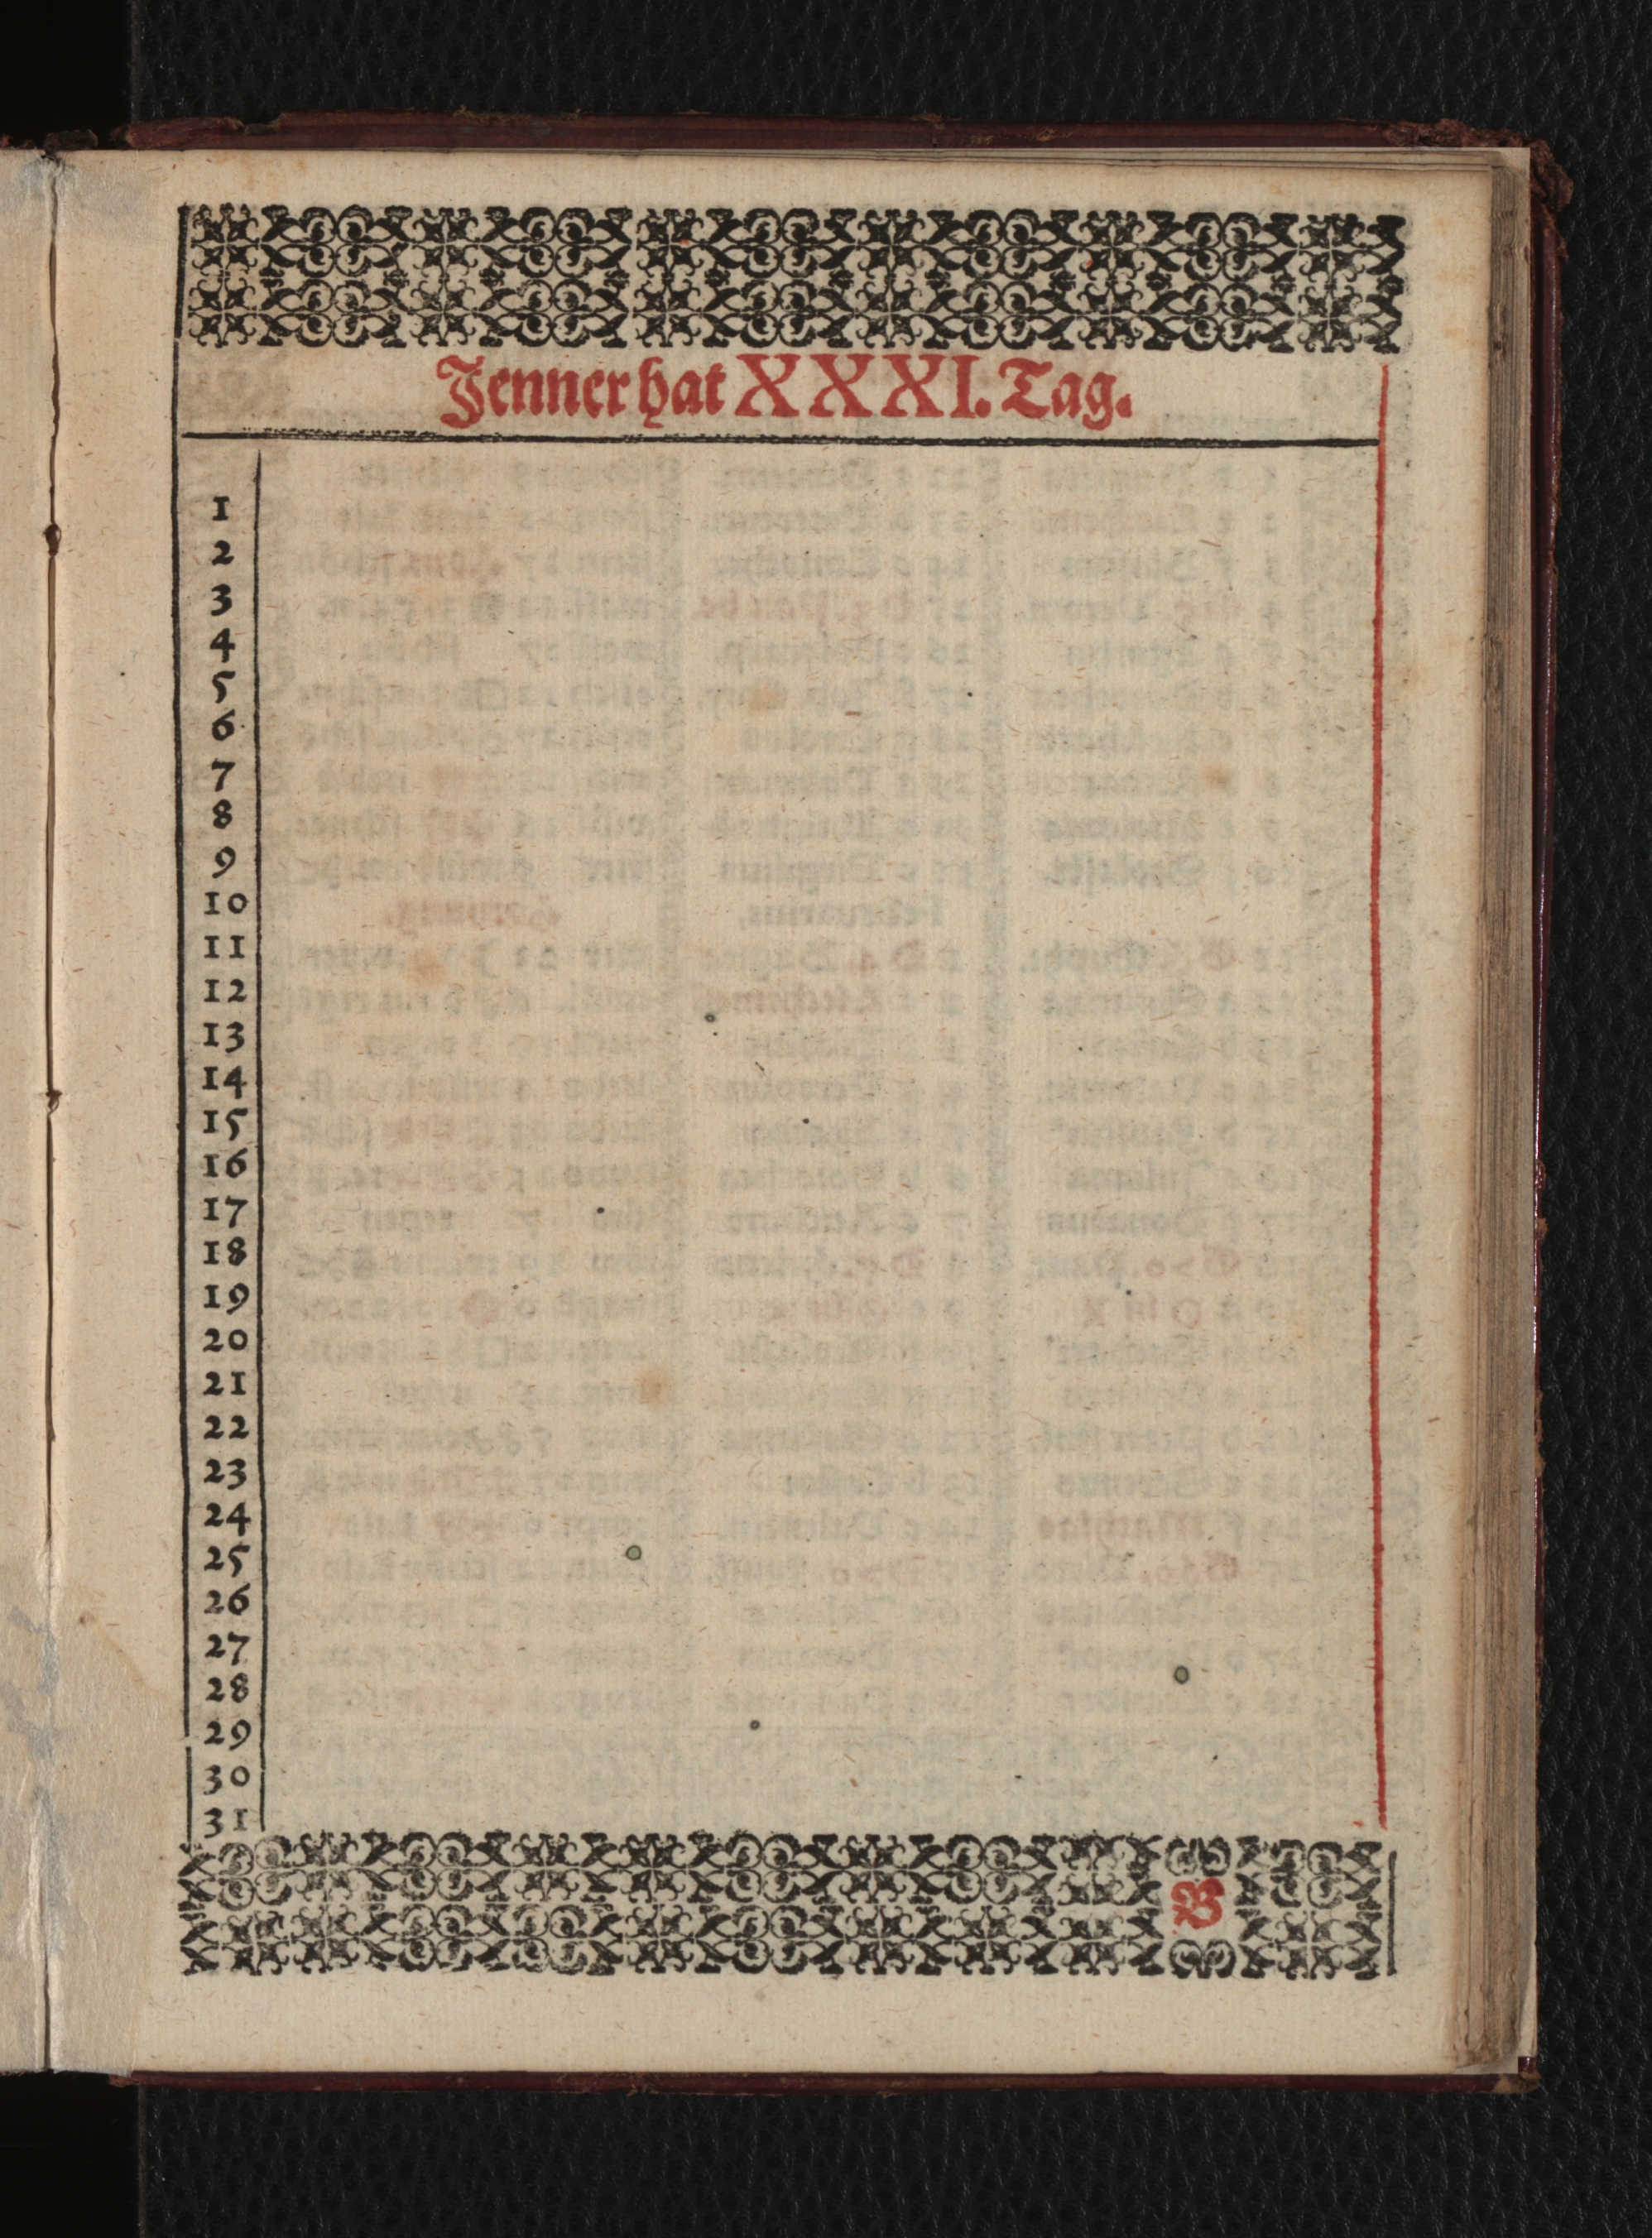 Jenner hat XXXI. Tag.
1
2
3
4
5
6
7
8
9
10
11
12
13
14
15
16
17
18
19
20
21
22
23
24
25
26
27
28
29
30
31
B